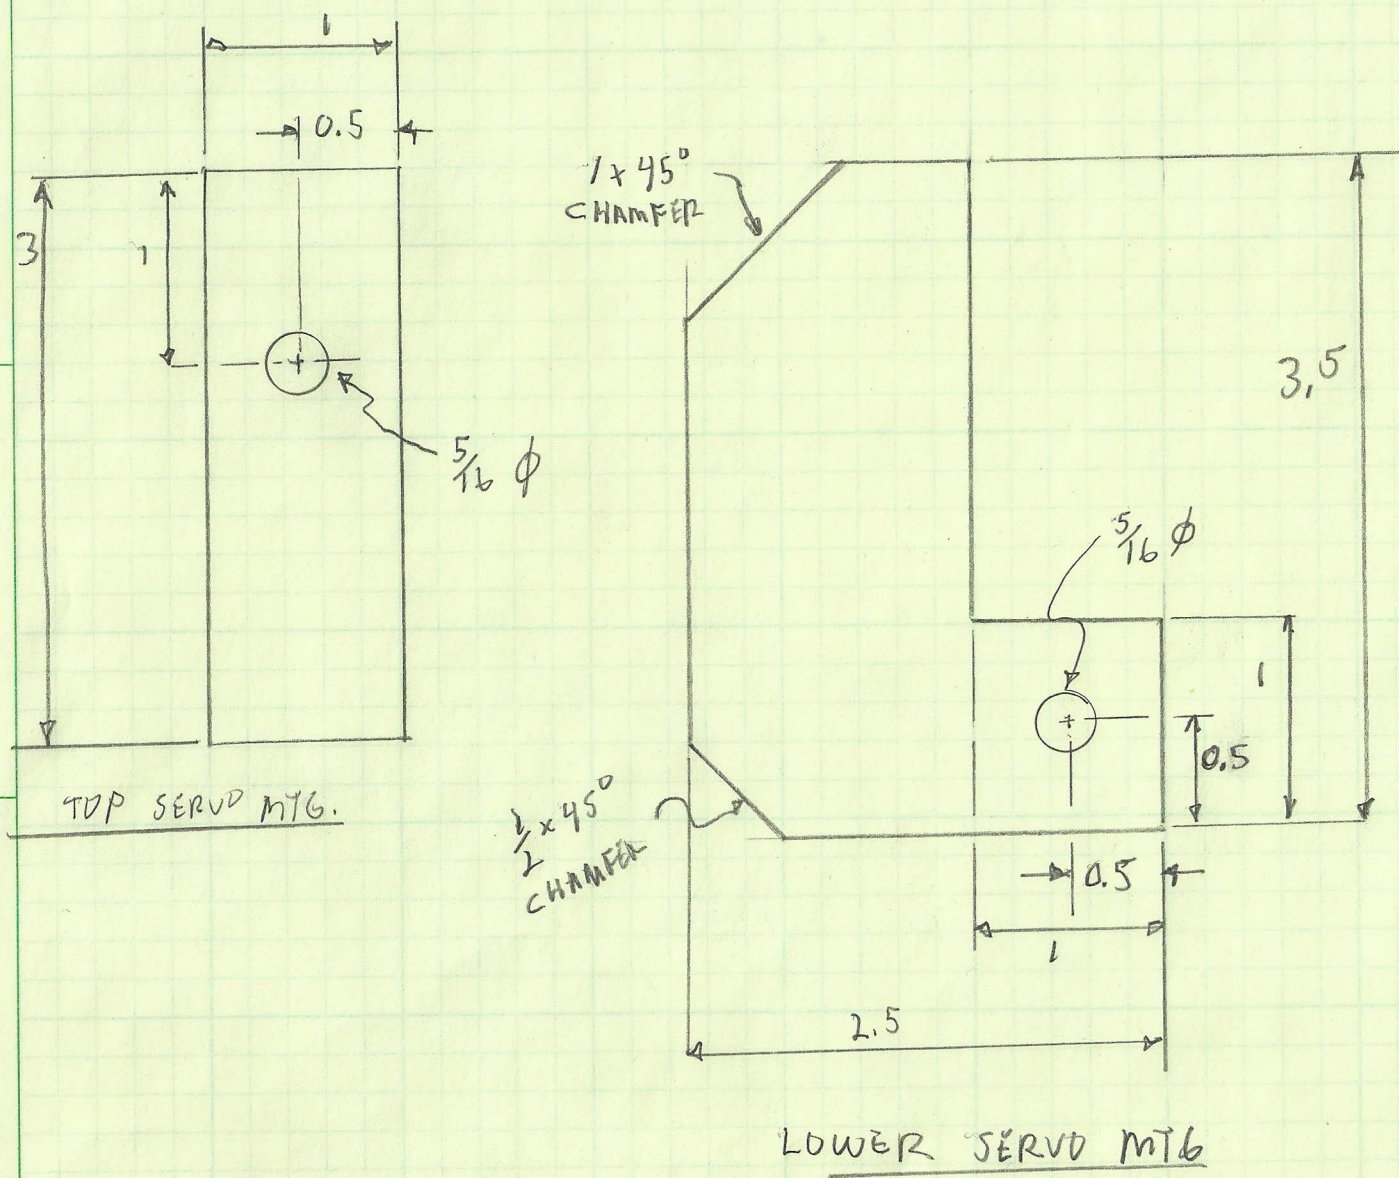 1
0.5
3
1
5/16 ϕ
TOP SERVO MTG.
1 x 45°
CHAMFER
3.5
5/16 ϕ
1
0.5
1/2 x 45°
CHAMFER
0.5
1
2.5
LOWER SERVO MTG